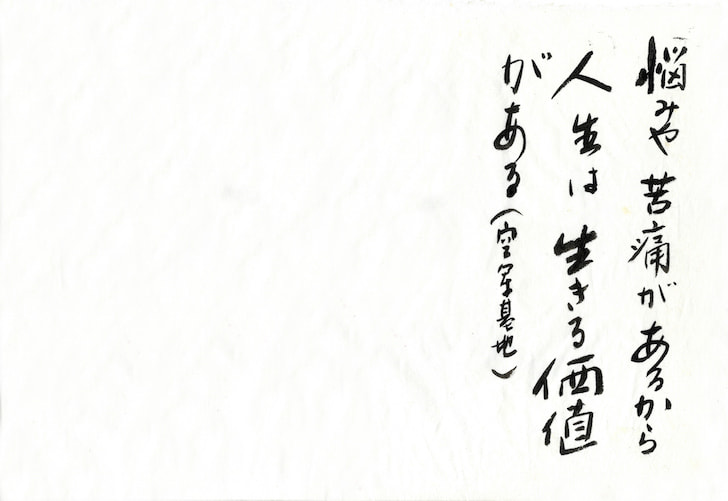 悩みや苦痛があるから
人生は生きる価値
がある(空軍基地)